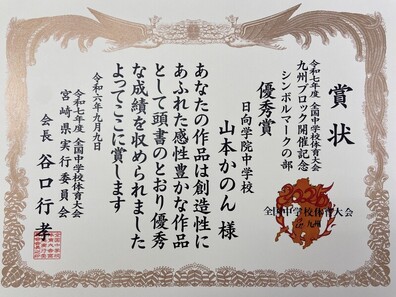 賞状
令和七年度 全国中学校体育大会
九州ブロック開催記念
シンボルマークの部
優秀賞
日向学院中学校
山本かのん 様
あなたの作品は創造性に
あふれた感性豊かな作品
として頭書のとおり優秀
な成績を収められました
よってここに賞します
令和六年九月九日
令和七年度 全国中学校体育大会
宮崎県実行委員会
会長 谷口行孝
2025
全国中学校体育大会
in 九州